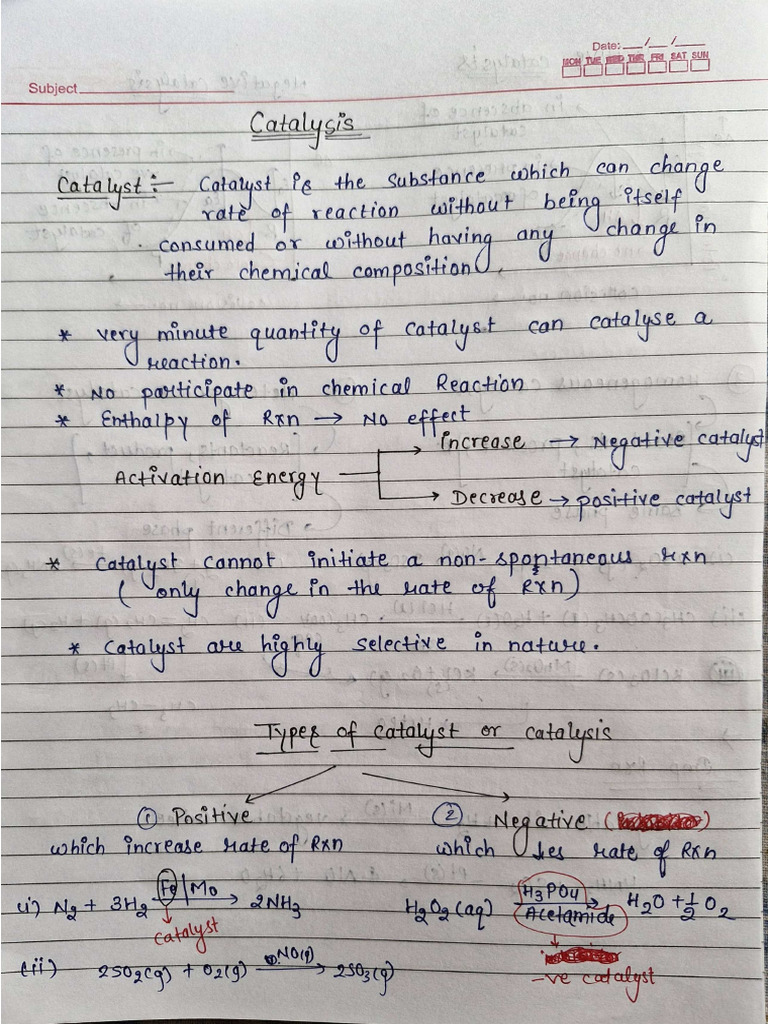 Date: __/__/__
MON TUE WED THR FRI SAT SUN
Subject
Catalysis
Catalyst :- Catalyst is the substance which can change
rate of reaction without being itself
consumed or without having any change in
their chemical composition.
* very minute quantity of catalyst can catalyse a
reaction.
* No participate in chemical Reaction
* Enthalpy of Rxn → No effect
Activation Energy
increase → Negative catalyst
Decrease → positive catalyst
* catalyst cannot initiate a non-spontaneous rxn
(only change in the rate of Rxn)
* catalyst are highly selective in nature.
Types of catalyst or catalysis
① Positive
which increase rate of Rxn
(i) N2 + 3H2 Fe/Mo → 2NH3
catalyst
(ii) 2SO2(g) + O2(g) NO(g) → 2SO3(g)
② Negative
which ↓es rate of Rxn
H2O2(aq) H3PO4 Acetamide → H2O + 1/2 O2
-ve catalyst